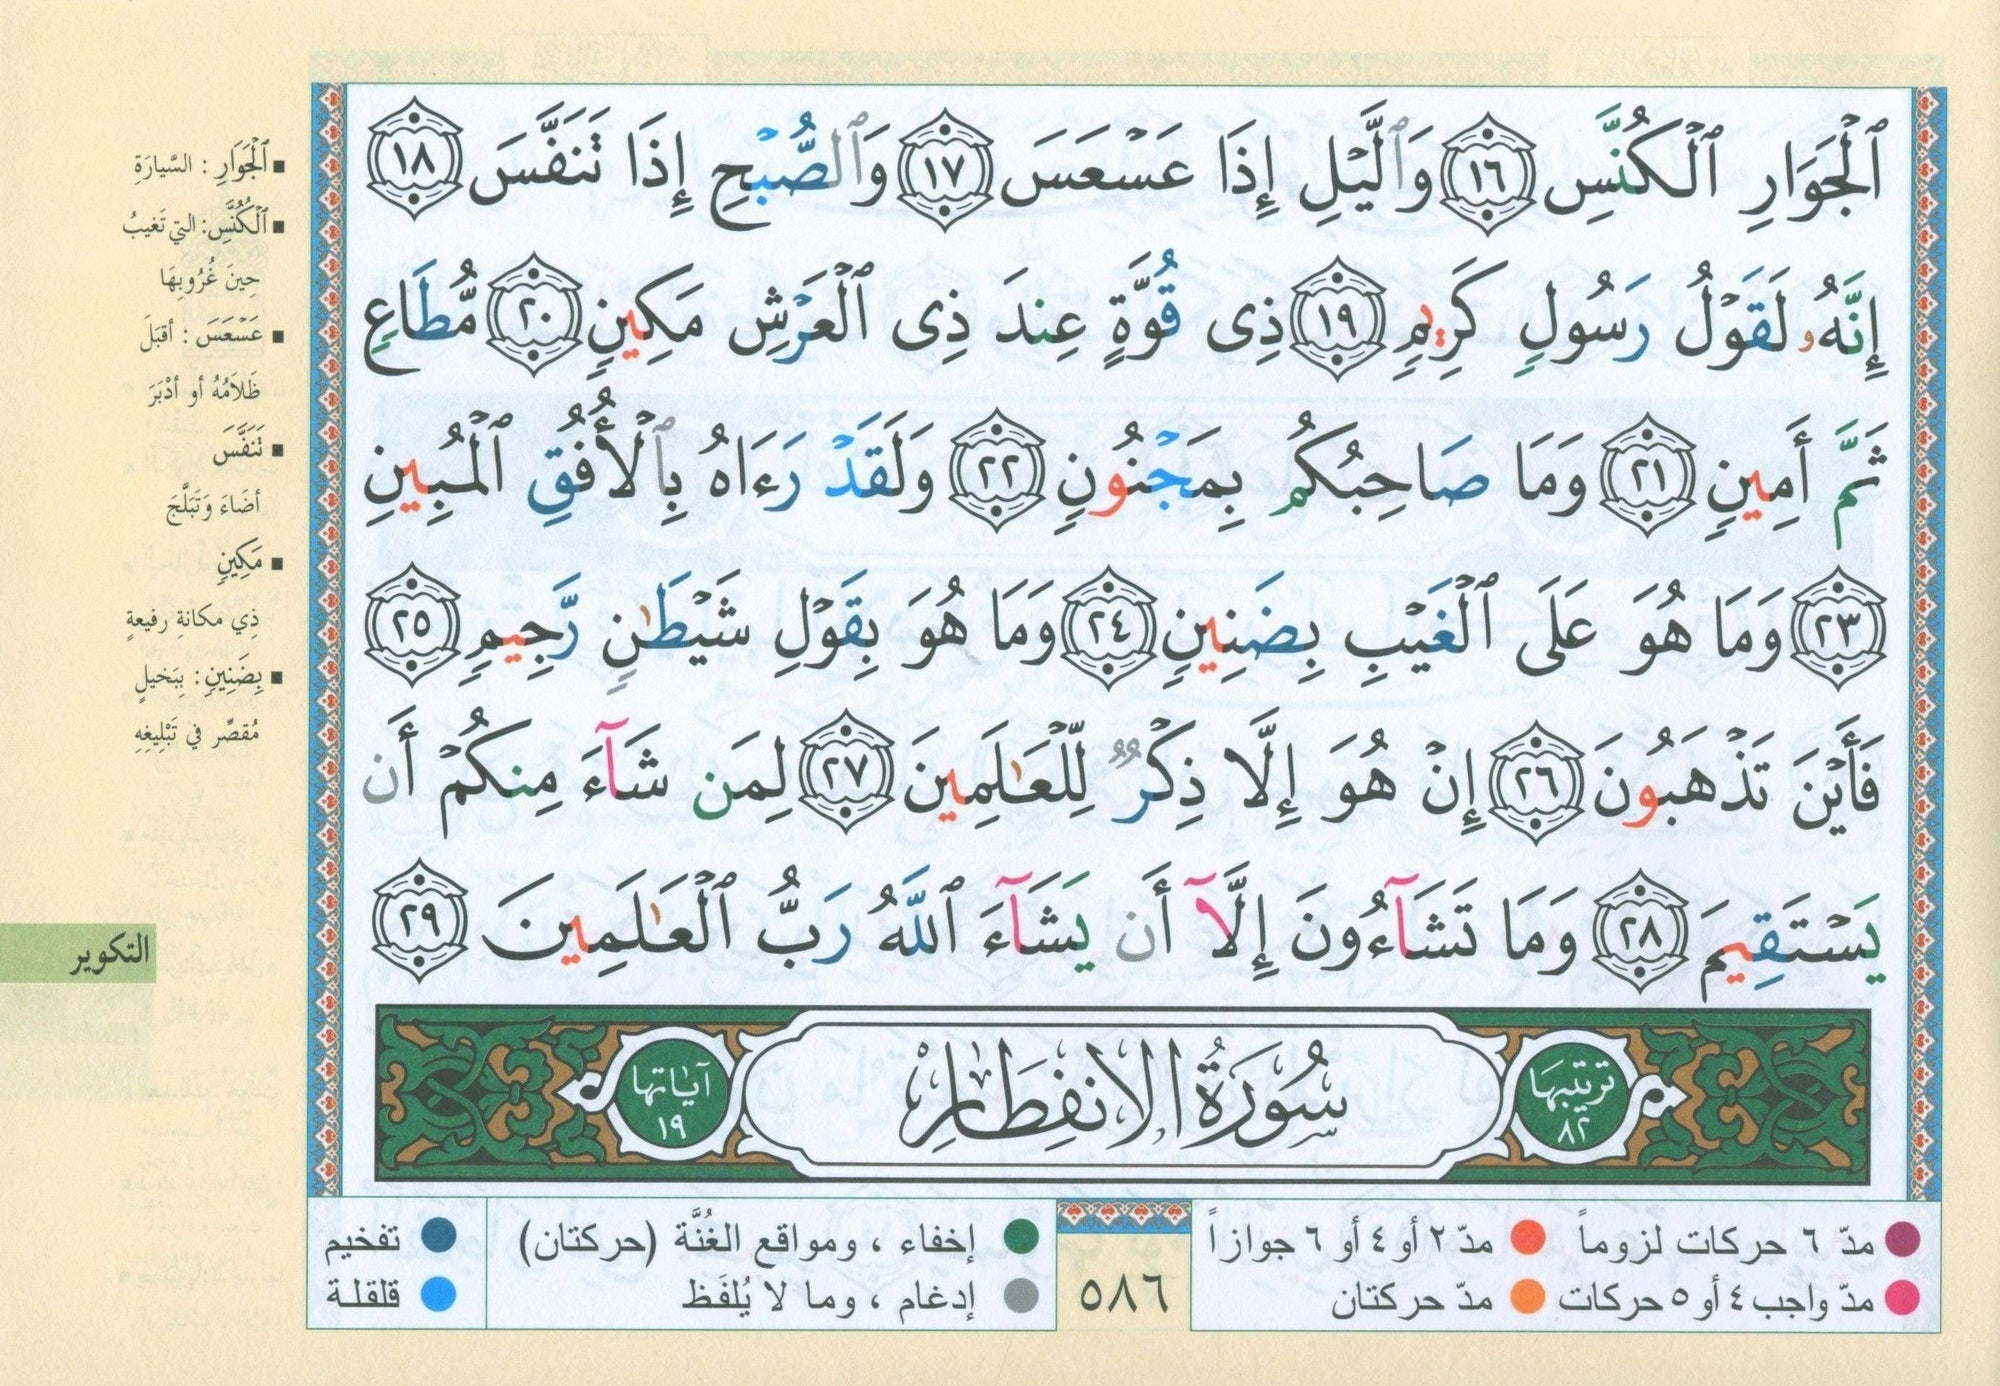 ٱلْجَوَارِ ٱلْكُنَّسِ ١٦ وَٱلَّيْلِ إِذَا عَسْعَسَ ١٧ وَٱلصُّبْحِ إِذَا تَنَفَّسَ ١٨
إِنَّهُۥ لَقَوْلُ رَسُولٍ كَرِيمٍ ١٩ ذِى قُوَّةٍ عِندَ ذِى ٱلْعَرْشِ مَكِينٍ ٢٠ مُّطَاعٍ
ثَمَّ أَمِينٍ ٢١ وَمَا صَاحِبُكُم بِمَجْنُونٍ ٢٢ وَلَقَدْ رَءَاهُ بِٱلْأُفُقِ ٱلْمُبِينِ
٢٣ وَمَا هُوَ عَلَى ٱلْغَيْبِ بِضَنِينٍ ٢٤ وَمَا هُوَ بِقَوْلِ شَيْطَٰنٍ رَّجِيمٍ ٢٥
فَأَيْنَ تَذْهَبُونَ ٢٦ إِنْ هُوَ إِلَّا ذِكْرٌ لِّلْعَٰلَمِينَ ٢٧ لِمَن شَآءَ مِنكُمْ أَن
يَسْتَقِيمَ ٢٨ وَمَا تَشَآءُونَ إِلَّآ أَن يَشَآءَ ٱللَّهُ رَبُّ ٱلْعَٰلَمِينَ ٢٩
ترتيبها ٨٢ سُورَةُ الانفِطَارِ آياتها ١٩
ٱلْجَوَارِ : السَّيارَةِ
ٱلْكُنَّسِ : التي تَغيبُ
حِينَ غُرُوبِهَا
عَسْعَسَ : أقبَلَ
ظَلَامُهُ أو أدْبَرَ
تَنَفَّسَ
أضَاءَ وَتَبَلَّجَ
مَكِينٍ
ذِي مكانةِ رفيعةٍ
بِضَنِينٍ : بِبَخيلٍ
مُقصِّر في تَبْلِيغِهِ
التكوير
مدّ ٦ حركات لزوماً مدّ ٢ أو ٤ أو ٦ جوازاً
مدّ واجب ٤ أو ٥ حركات مدّ حركتان
٥٨٦
إخفاء ، ومواقع الغُنَّة (حركتان) تفخيم
إدغام ، وما لا يُلفَظ قلقلة